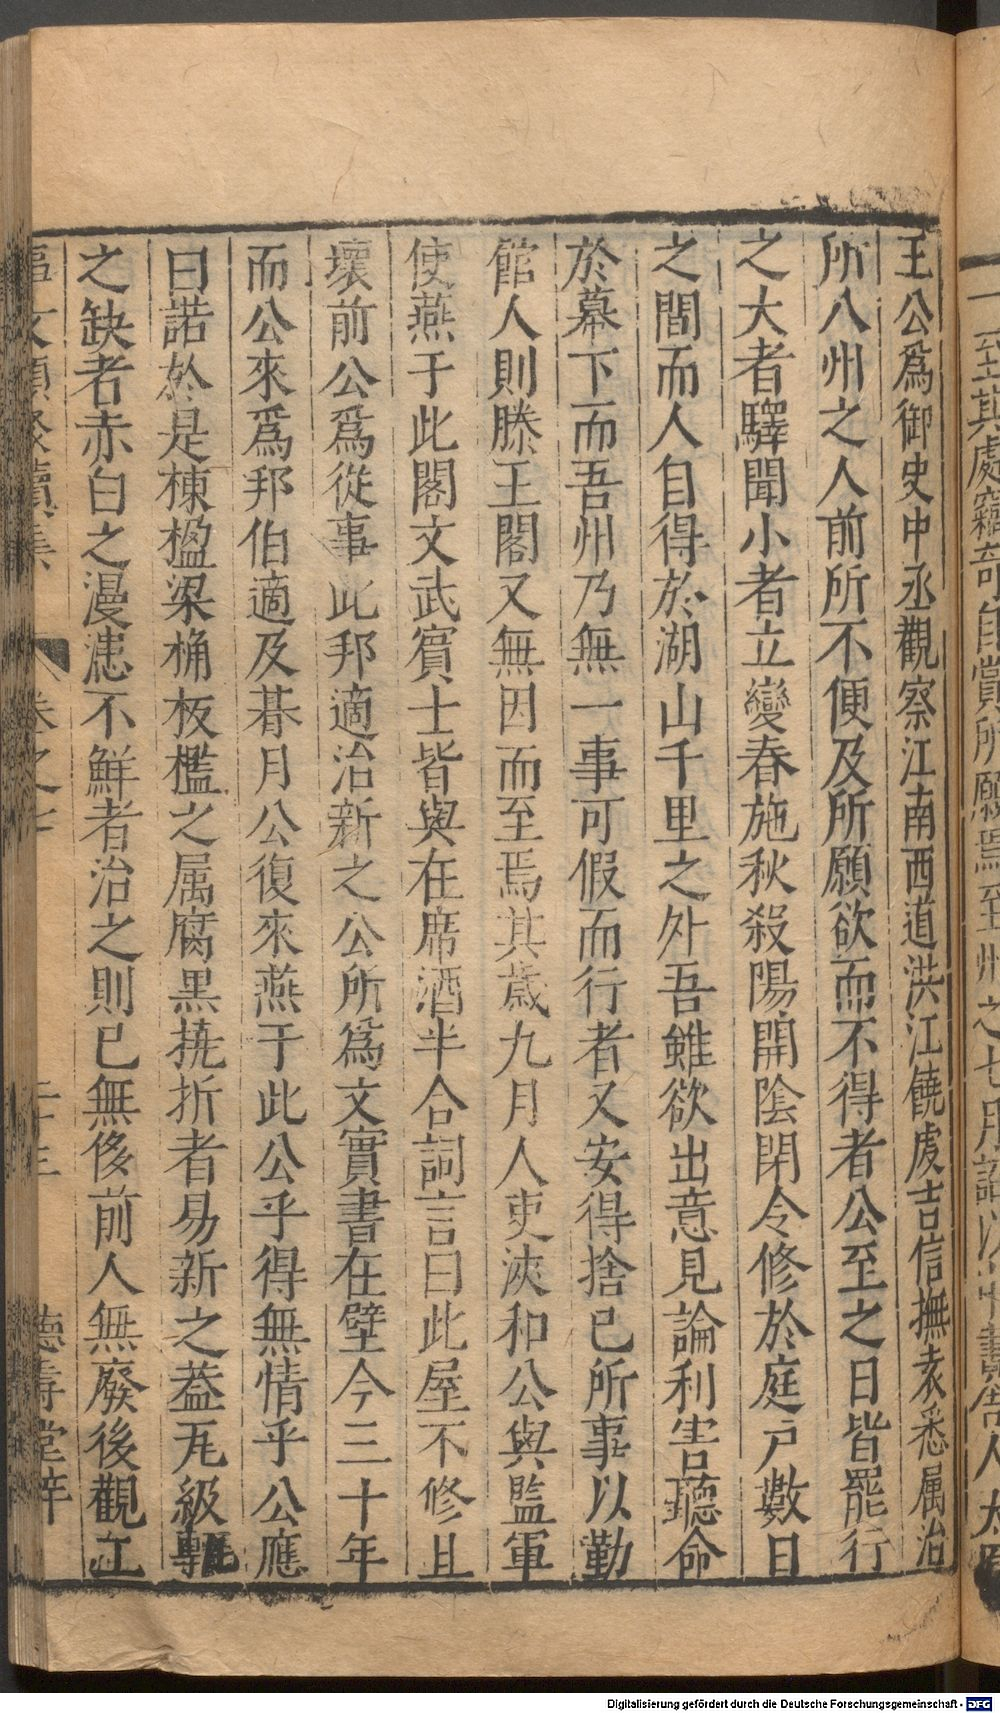 王公爲御史中丞觀察江南西道洪江饒虔吉信撫袁悉属治
所八州之人前所不便及所願欲而不得者公至之日皆罷行
之大者驛聞小者立變春施秋殺陽開陰閉令修於庭户數日
之間而人自得於湖山千里之外吾雖欲出意見論利害聽命
於幕下而吾州乃無一事可假而行者又安得捨已所事以勤
館人則滕王閣又無因而至焉其歲九月人吏浹和公與監軍
使燕于此閣文武賓士皆與在席酒半合詞言曰此屋不修且
壞前公爲從事此邦適治新之公所爲文實書在壁今三十年
而公來爲邦伯適及朞月公復來燕于此公乎得無情乎公應
曰諾於是棟楹梁桷板檻之属腐黒撓折者易新之葢瓦級甎
之缺者赤白之漫漶不鮮者治之則已無侈前人無廢後觀工
卷之七
二十三
德壽堂梓
Digitalisierung gefördert durch die Deutsche Forschungsgemeinschaft - DFG